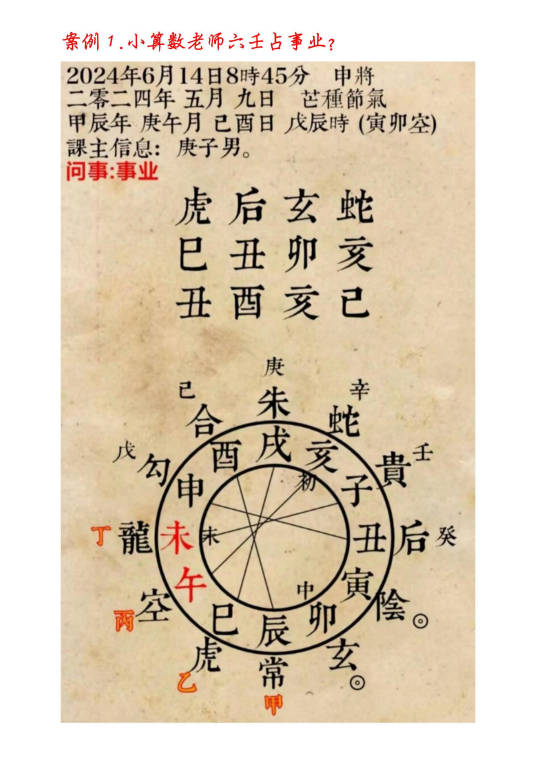 案例1.小算数老师六壬占事业？
2024年6月14日8時45分 申將
二零二四年 五月 九日 芒種節氣
甲辰年 庚午月 己酉日 戊辰時 (寅卯空)
課主信息: 庚子男。
问事:事业
虎 后 玄 蛇
巳 丑 卯 亥
丑 酉 亥 己
庚
己 朱 辛
合 蛇
戊 戌 壬
勾 酉 亥 貴
申 初 子
丁 龍 未 末 丑 后 癸
午 中 寅
丙 空 巳 辰 卯 陰
虎 常 玄
乙 甲